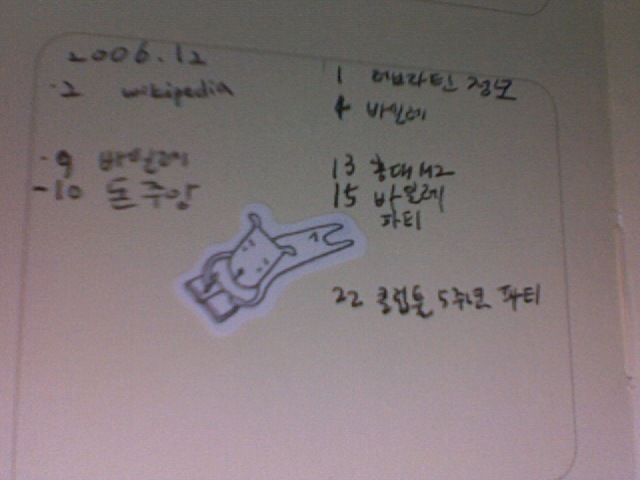 2006.12
·2 wikipedia
·9 바일레
-10 돈주앙
1 더브라틴 정모
4 바일레
13 홍대 M2
15 바일레
파티
22 클럽툴 5주년 파티